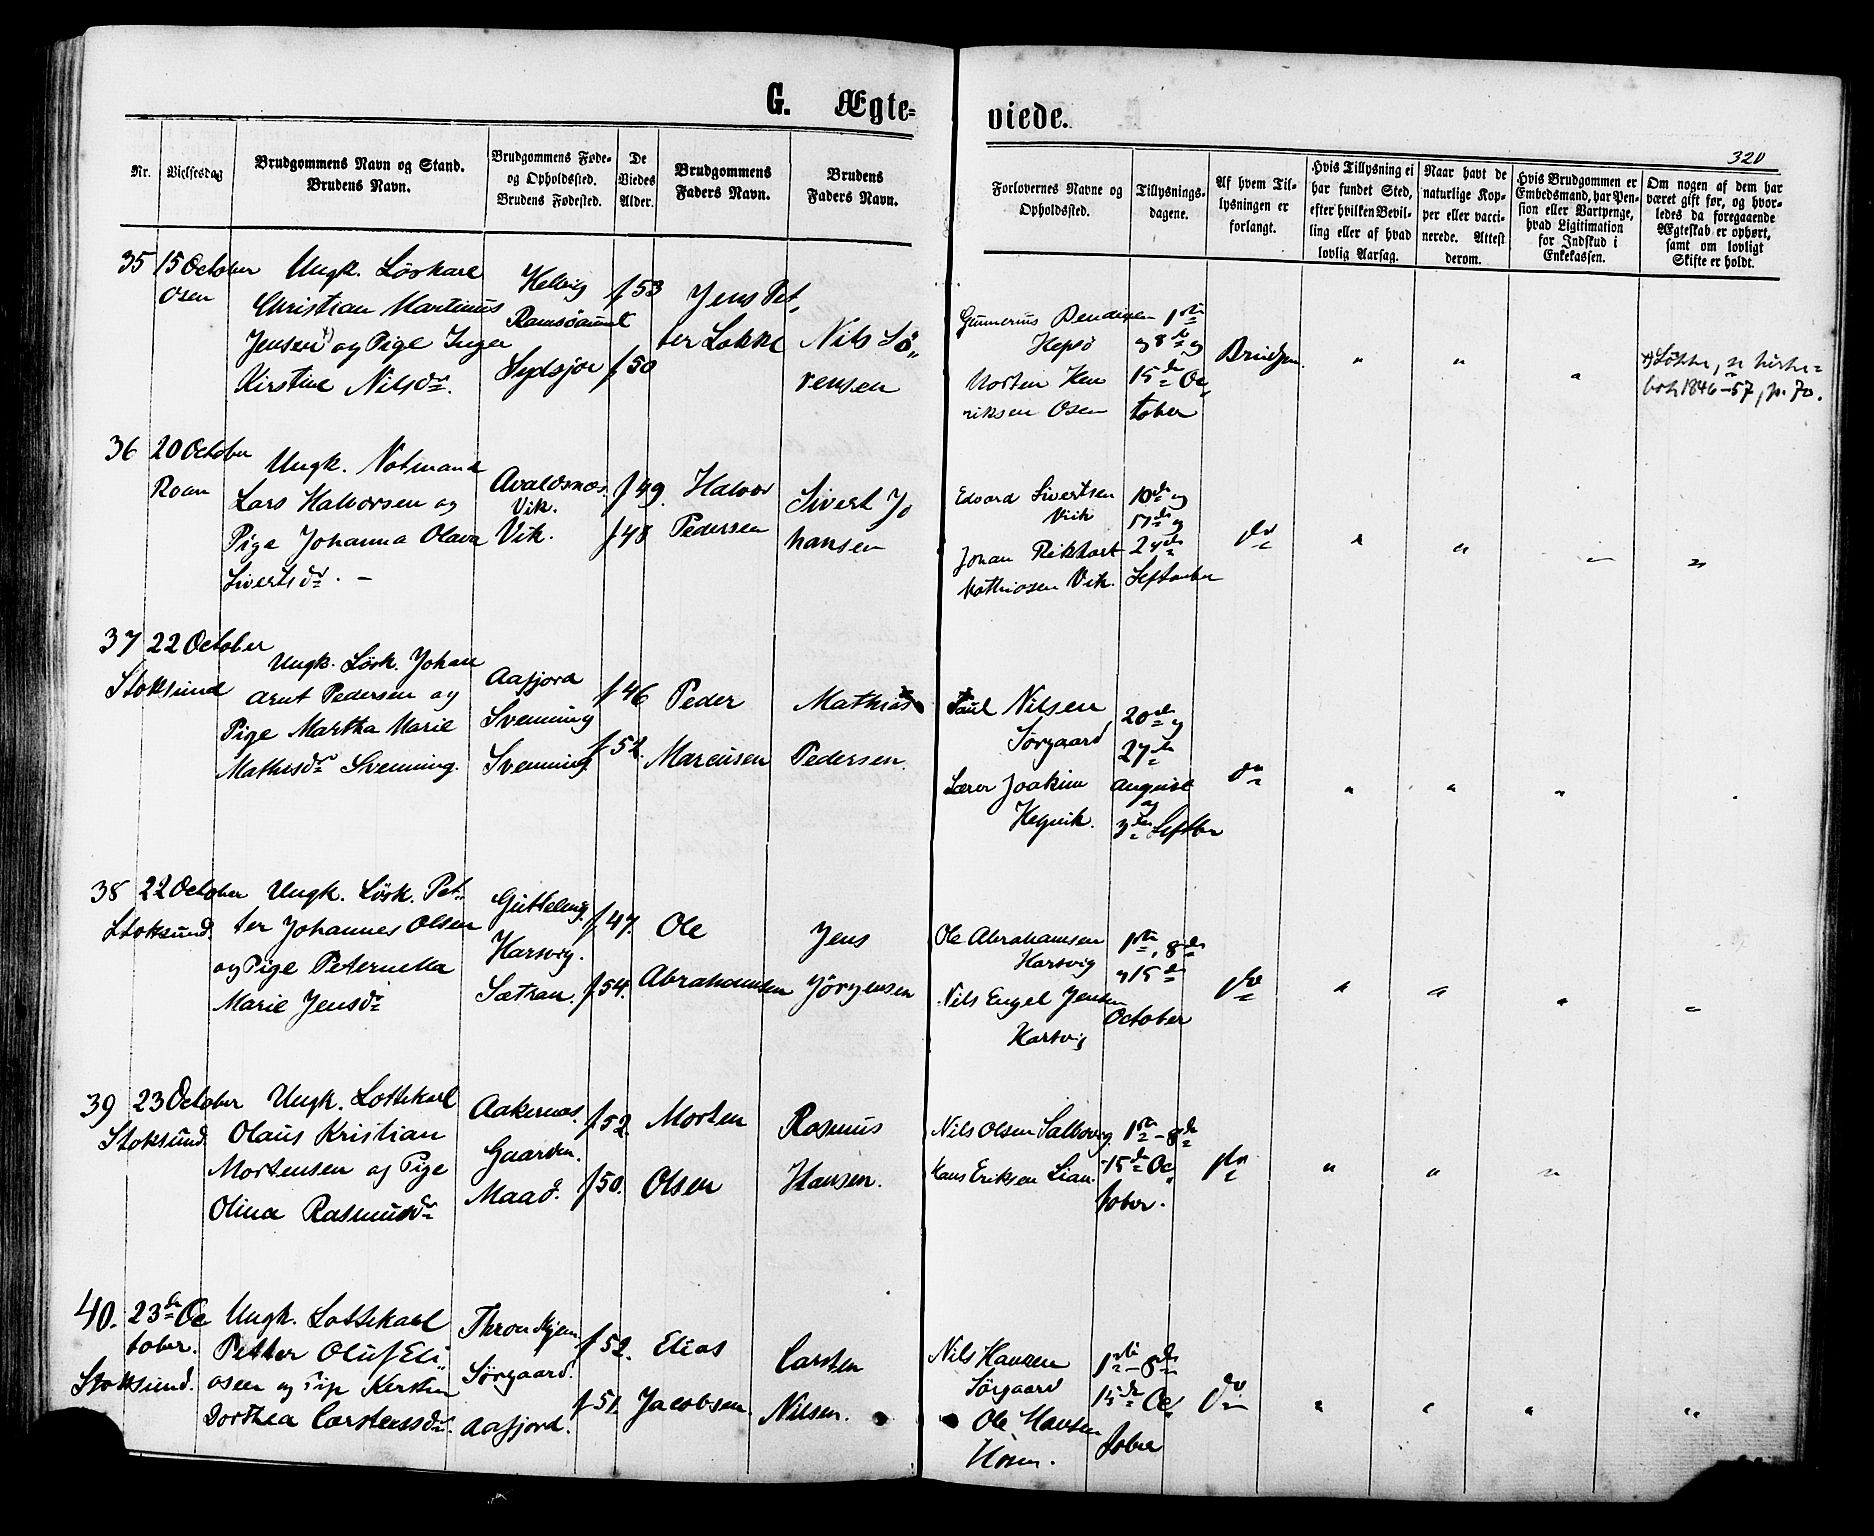 G. Ægte=
viede.
320
Nr.
Vielsesdag
Brudgommens Navn og Stand.
Brudens Navn.
Brudgommens Føde-
og Opholdssted.
Brudens Fødested.
De
Viedes
Alder.
Brudgommens
Faders Navn.
Brudens
Faders Navn.
Forlovernes Navne og
Opholdssted.
Tillysnings-
dagene.
Af hvem Til-
lysningen er
forlangt.
Hvis Tillysning ei
har fundet Sted,
efter hvilken Bevil-
ling eller af hvad
lovlig Aarsag.
Naar havt de
naturlige Kop-
per eller vacci-
nerede. Attest
derom.
Hvis Brudgommen er
Embedsmand, har Pen-
sion eller Vartpenge,
hvad Ligitimation
for Indskud i
Enkekassen.
Om nogen af dem har
været gift før, og hvor-
ledes da foregaaende
Ægteskab er ophørt,
samt om lovligt
Skifte er holdt.
35
15 October
Osen
Ungk. Løskarl
Christian Martinus
Jensen og Pige Inger
Kirstine Nilsdr.
f 53
f 50
Jens Pet
ter Løkke
Nils Sö„
rensen
Gunnerius Bendigsen
Hepsö
Morten Hen
riksen Osen
1ste
og 8de og
15de Oc„
tober
Brudgm.
x) Løkke, se kirke=
bok 1846–57, p. 70.
36
20 October
Roan
Ungk. Notmand
Lars Halvorsen og
Pige Johanna Olava
Sivertsdr. –
Avaldsnæs.
Vik.
Vik.
f 49.
f 48
Halvor
Pedersen
Sivert Jo
hansen
Edvard Sivertsen
Viik
Johan Rikhart
Mathiasen Vik.
10de og
17de og
24de
September
do
37
22 October
Stoksund
Ungk. Lösk. Johan
Arnt Pedersen og
Pige Martha Marie
Mathisdr Svenning.
Aafjord
Svenning
Svenning
f 46
f 52.
Peder
Marcusen
Mathias
Pedersen.
Paul Nilsen
Sörgaard
Lærer Joakim
Hegvik.
20de og
27de
August
og
3de Septber
do
38
22 October
Stoksund.
Ungk. Lösk. Pet„
ter Johannes Olsen
og Pige Peternella
Marie Jensdr
Gutteling.
Harsvig.
Sætran.
f 47.
f 54.
Ole
Abrahamsen
Jens
Jörgensen
Ole Abrahamsen
Harsvig
Nils Engel Jensen
Harsvig
1ste, 8de
og 15de
October
do
39
23 October
Stoksund.
Ungk. Lottekarl
Olaus Kristian
Mortensen og Pige
Olina Rasmusdr
Aakernæs.
Gaarden.
Maad.
f 52.
f 50.
Morten
Olsen
Rasmus
Hansen.
Nils Olsen Salborvig.
Hans Eriksen Lian.
1ste – 8de
15de Oc„
tober.
do
40.
23de Oc
tober.
Stoksund.
Ungk. Lottekarl
Petter Oluf Eli„
asen og Pige Kersten
Dorthea Carstensdr.
Throndhjem
Sörgaard.
Aafjord.
f 52.
f 51.
Elias
Jacobsen.
Carsten
Nilsen.
Nils Hansen
Sörgaard
Ole Hansen
1ste – 8de
15de Oc„
tober
do